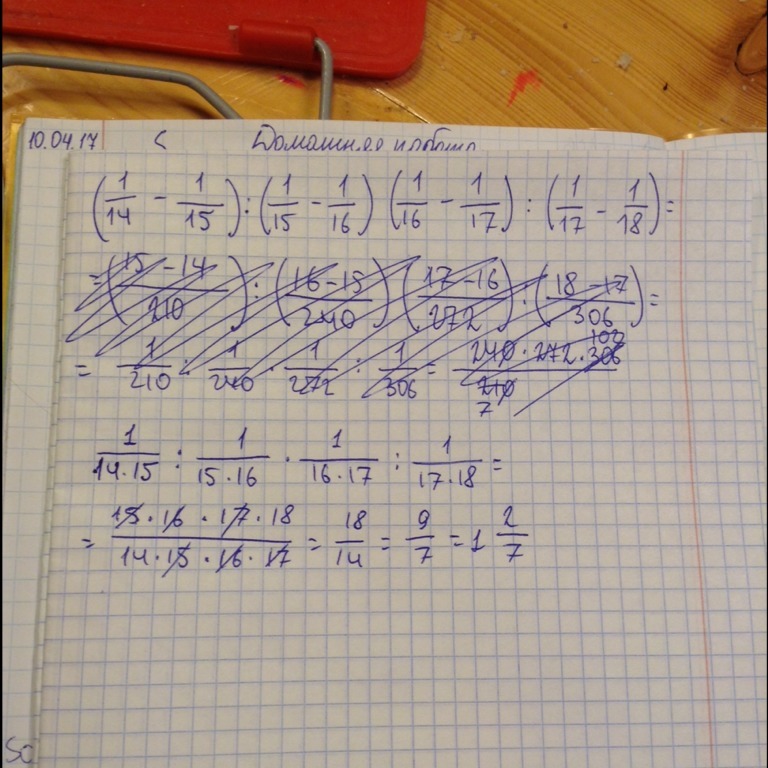 10.04.17 Домашняя работа
(1/14 - 1/15) : (1/15 - 1/16) (1/16 - 1/17) : (1/17 - 1/18) =
= (15-14/210) : (16-15/240) (17-16/272) : (18-17/306) =
= 1/210 : 1/240 · 1/272 : 1/306 = 240·272·306/210 102 7
1/14·15 : 1/15·16 · 1/16·17 : 1/17·18 =
= 15·16·17·18/14·15·16·17 = 18/14 = 9/7 = 1 2/7